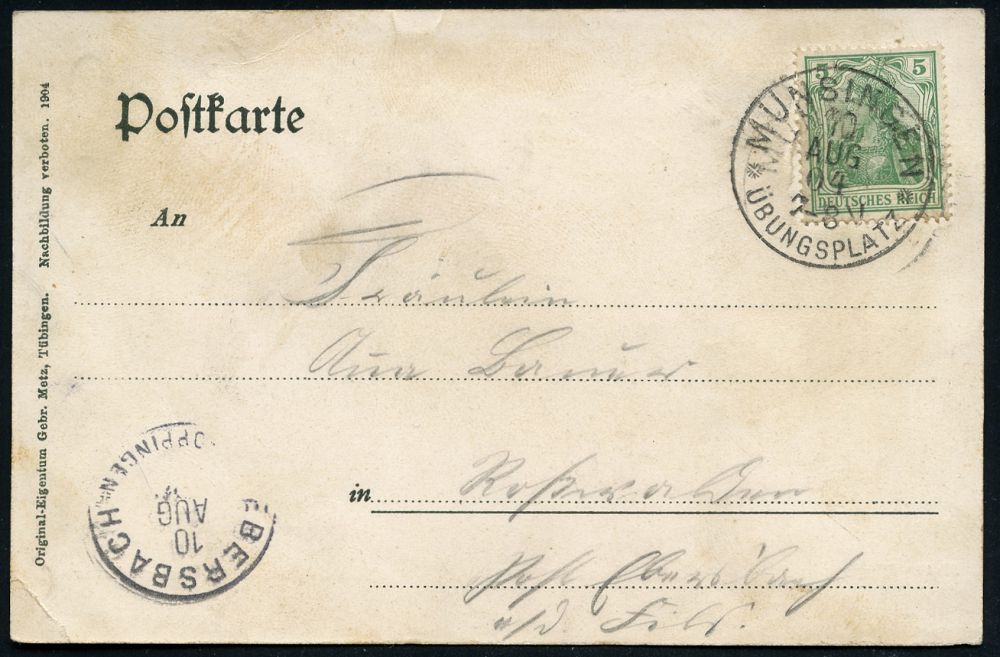 Postkarte
5 5
DEUTSCHES REICH
* MÜNSINGEN *
10
AUG
04
7-8 V
ÜBUNGSPLATZ
An
Fräulein
Bauer
in Roßwalden
Post Ebersbach
a/d. Fils.
EBERSBACH
10
AUG
Original-Eigentum Gebr. Metz, Tübingen. Nachbildung verboten. 1904